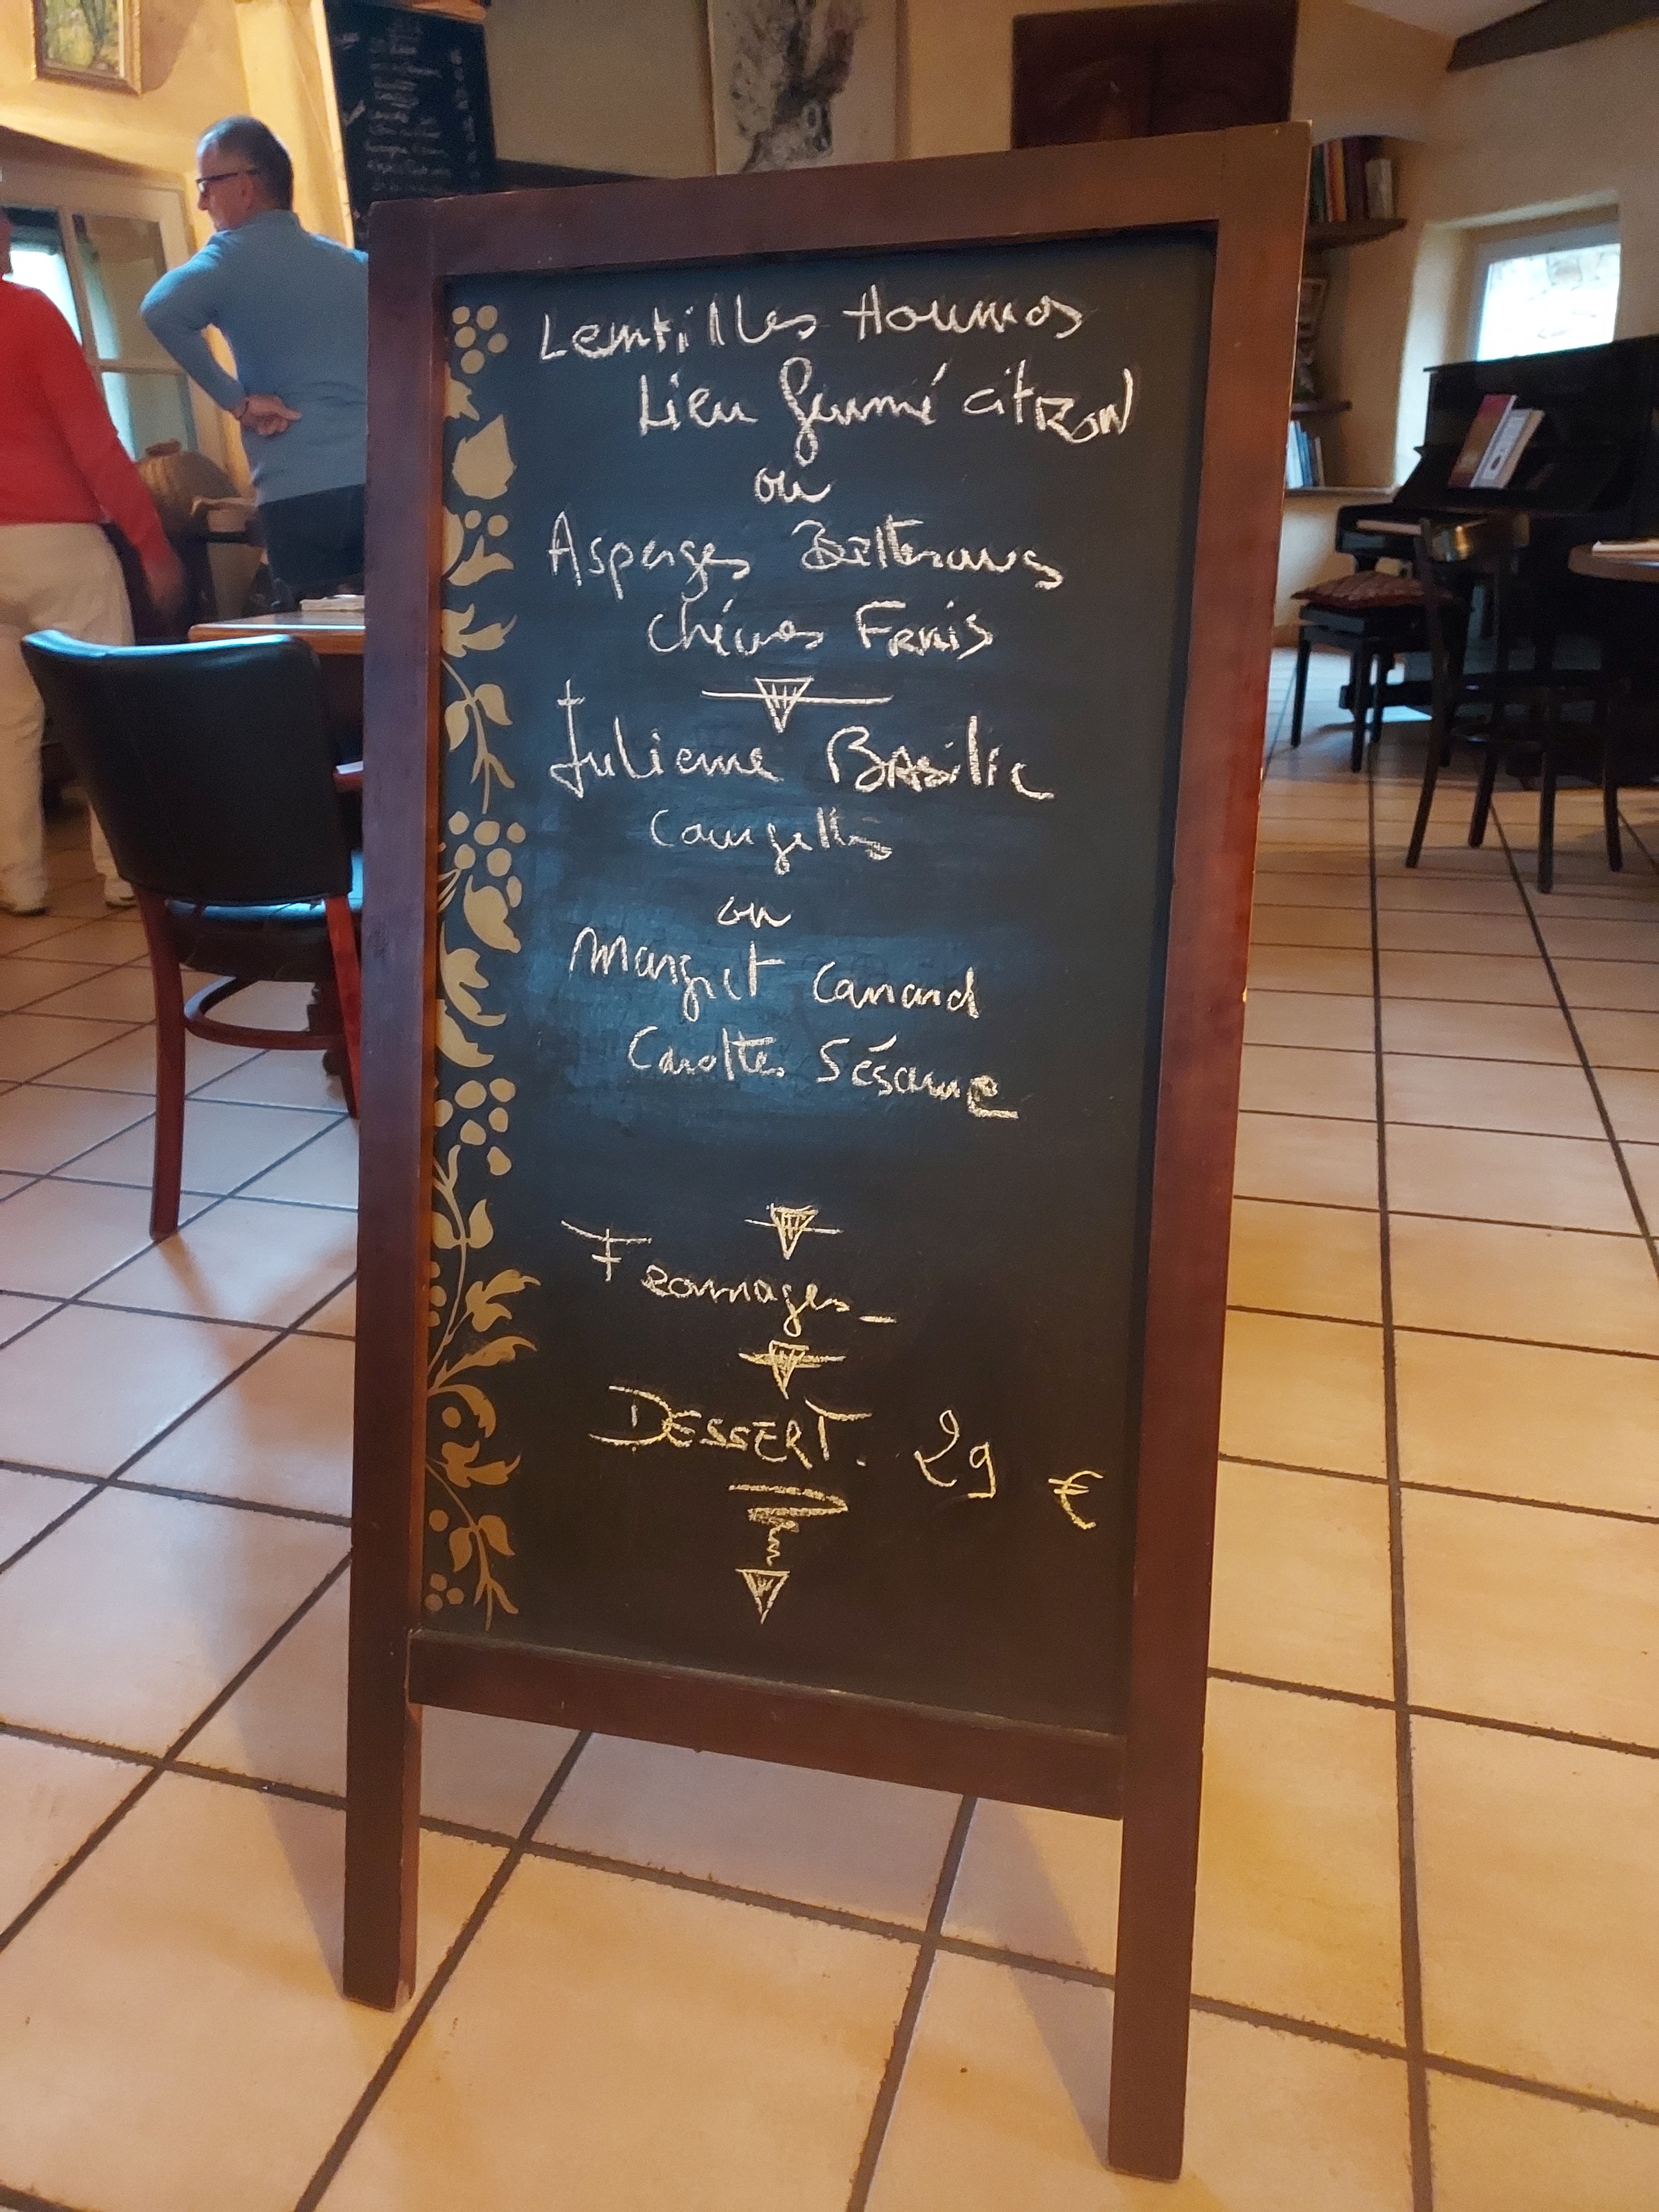 Lentilles Houmos
Lieu fumé citRON
ou
Asperges Betteraves
chèvres FRais
Julienne BAsilic
Courgettes
ou
Magret Canard
Carottes Sésame
Fromages_
DESSERT. 29 €